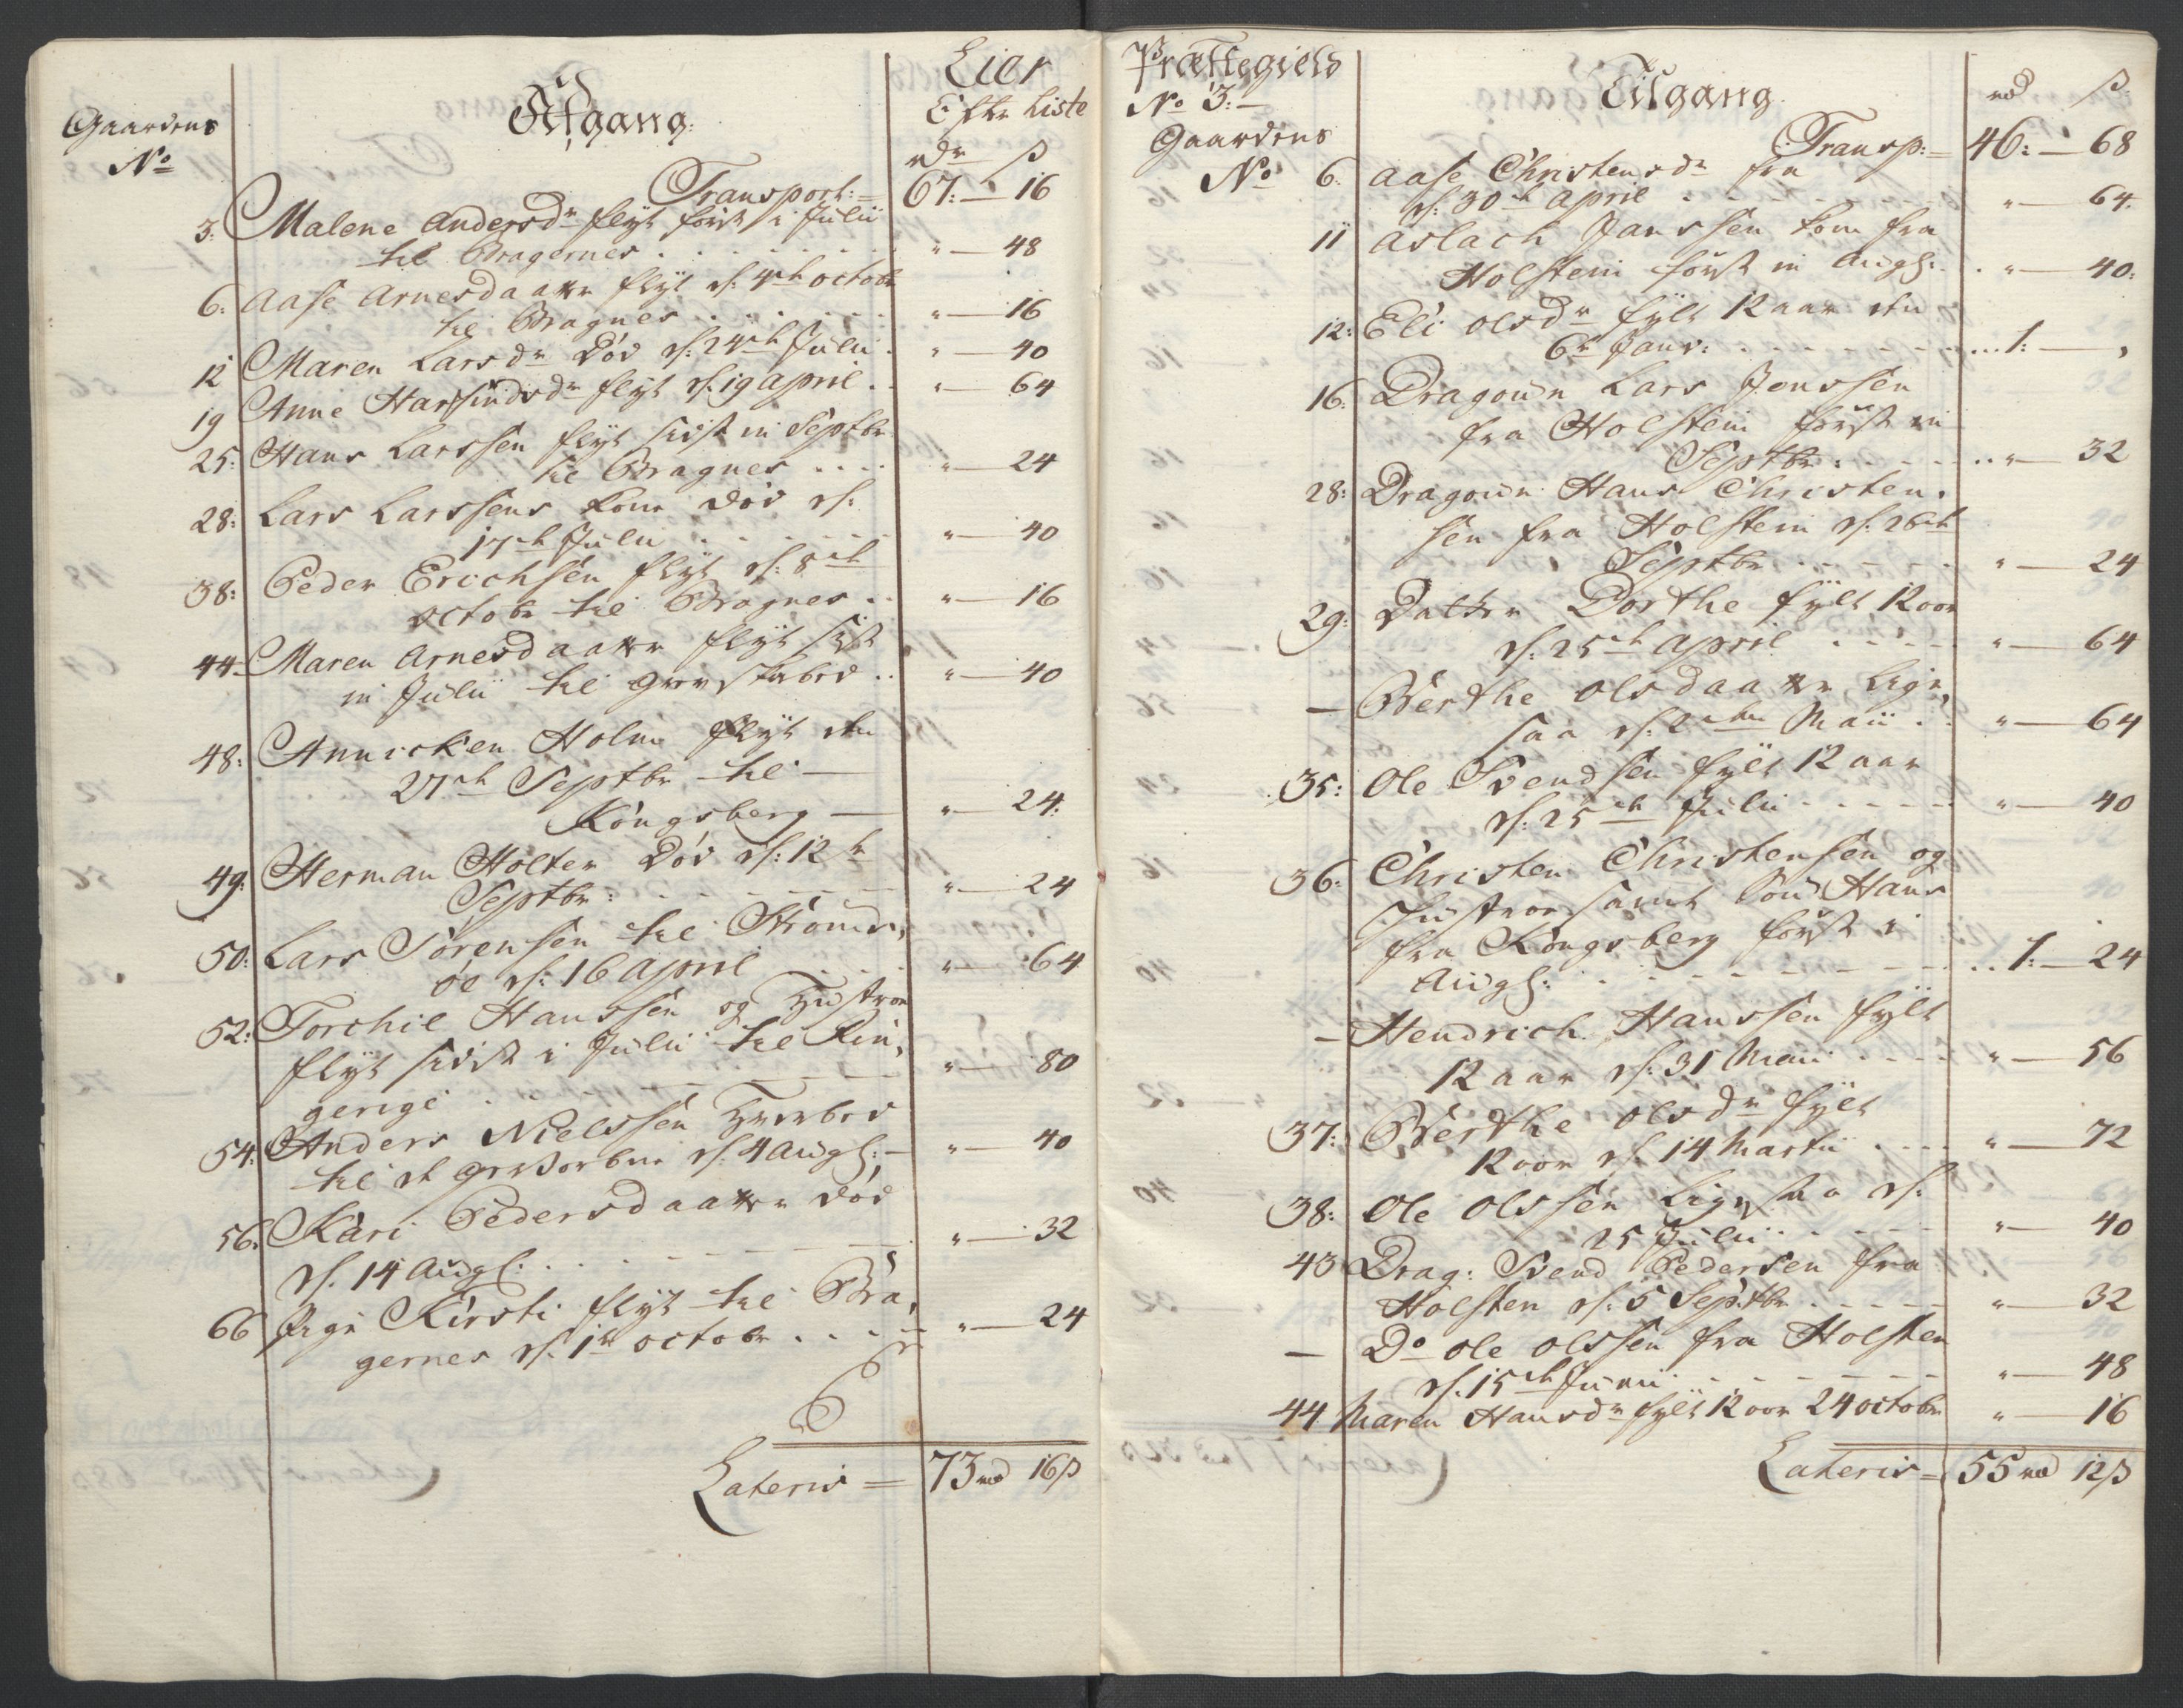 Eier
Gaardens
No
Afgang
Efter Liste
rdr ß
Transport:= 67:—16
3. Malene Andersdr flyt først i Julii
til Bragernes . . . . . "—48
6: Aase Arnesdaatter flyt d: 4de octobr
til Bragnes . . . . . "—16
12 Maren Larsdr Død d: 24de Julii . "—40
19 Anne Harsindsdr flyt d. 19 april . . "—64
25: Hans Larssen flyt sidst in Septbr
til Bragnes . . . . "—24
28: Lars Larssens kone død d:
17de Julii . . . . . "—40
38: Peder Erichsen flyt d: 8de
octobr til Bragnes . . "—16
44 Maren Arnesdaatter flyt sidst
in Julii til Grevskabet . . "—40
48: Annicken Holm flyt den
27de Septbr til —
Kongsberg — "—24:
49: Herman Holter Død d: 12te
Septbr: . . . . . "—24
50: Lars Sørensen til Strøms,
øe d: 16 April . . . . "—64
52: Torchil Hanssen og Hustroe
flyt sidst i Julii til Rin,
gerige . . . . . "—80
54: Anders Nielssen
til d: 4 Augs: — "—40
56: Kari Pedersdaatter død
d. 14 Augs: . . . . "—32
66 Pige Kirsti flyt til Bra,
gernes d: 1te octobr . . . . "—24
Lateris = 73 rd 16 ß
Prættegield
No 3:—
Gaardens
No
Tilgang
rd ß
Transp:= 46:—68
6. Aase Christensdr fra
d: 30te April . . . . . "—64.
11 Aslach Janssen kom fra
Holsteen først in Augs: . "—40:
12: Eli olsdr fylt 12 aar den
6te Janv: . . . . . 1:—,
16: Dragoun Lars Jenssen
fra Holsten først in
Septbr: . . . . . "—32
28: Dragoun Hans Christen,
sen fra Holsten d: 26de
Septbr . . . . . "—24
29: Datter Dorthe fylt 12 aar
d: 25de April . . . . . "—64
— Berthe olsdaatter lige,
saa d: 2den Maii . . "—64
35: Ole Svendsen fylt 12 aar
d: 25de Julii . . . . . "—40
36: Christen Christensen og
Hustroe samt Søn Hans
fra Kongsberg først i
Augs: . . . . . 1:—24
— Hendrich Hanssen fylt
12 aar d: 31 Maii . . . . "—56
37: Berthe olsdr fylt
12 aar d: 14 Martii . . . . "—72
38: Ole Olssen Ligesaa d:
25 Julii . . . . . "—40
43 Drag: Svend Pedersen fra
Holsten d: 5 Septbr . . . . . "—32
— Do ole olssen fra Holsten
d: 15de Junii . . . . . "—48
44 Maren Hansdr fylt 12 aar 24 octobr " 16
Lateris = 55 rd 12 ß